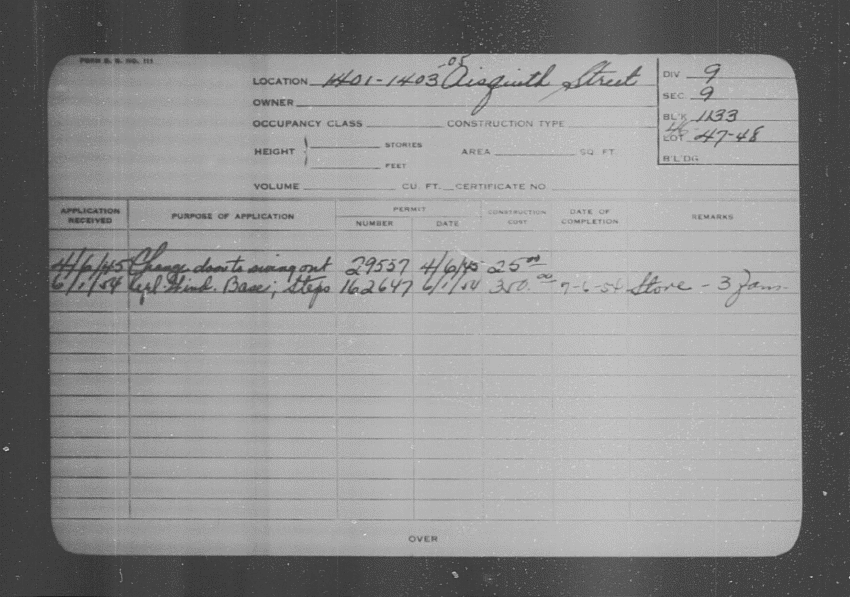 FORM B. B. NO. 111
LOCATION 1401-1403-05 Aisquith Street
DIV 9
OWNER
SEC 9
OCCUPANCY CLASS CONSTRUCTION TYPE
BL'K 1133
46
LOT 47-48
HEIGHT STORIES AREA SQ. FT.
FEET
B'L'DG
VOLUME CU. FT. CERTIFICATE NO.
APPLICATION RECEIVED PURPOSE OF APPLICATION PERMIT NUMBER DATE CONSTRUCTION COST DATE OF COMPLETION REMARKS
4/6/45 Change doors to swing out 29557 4/6/45 25.00
6/1/54 Repl. Wind. Base; steps 162647 6/1/54 350.00 7-6-54 Store - 3 Fam.
OVER